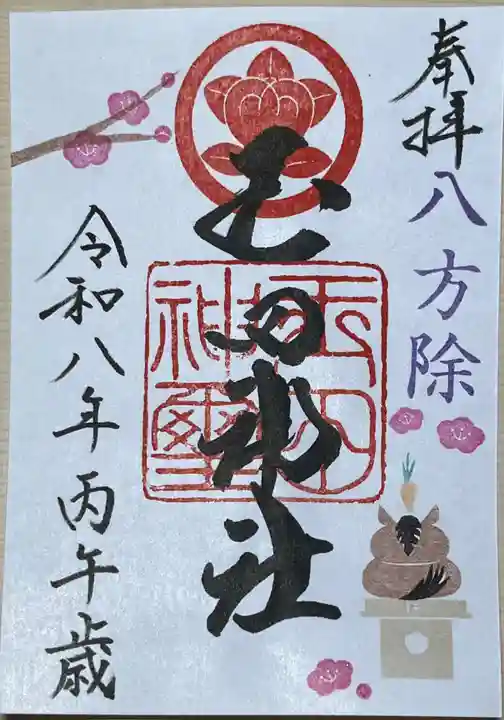 奉拝
八方除
玉田神社
玉田
神璽
令和八年丙午歳